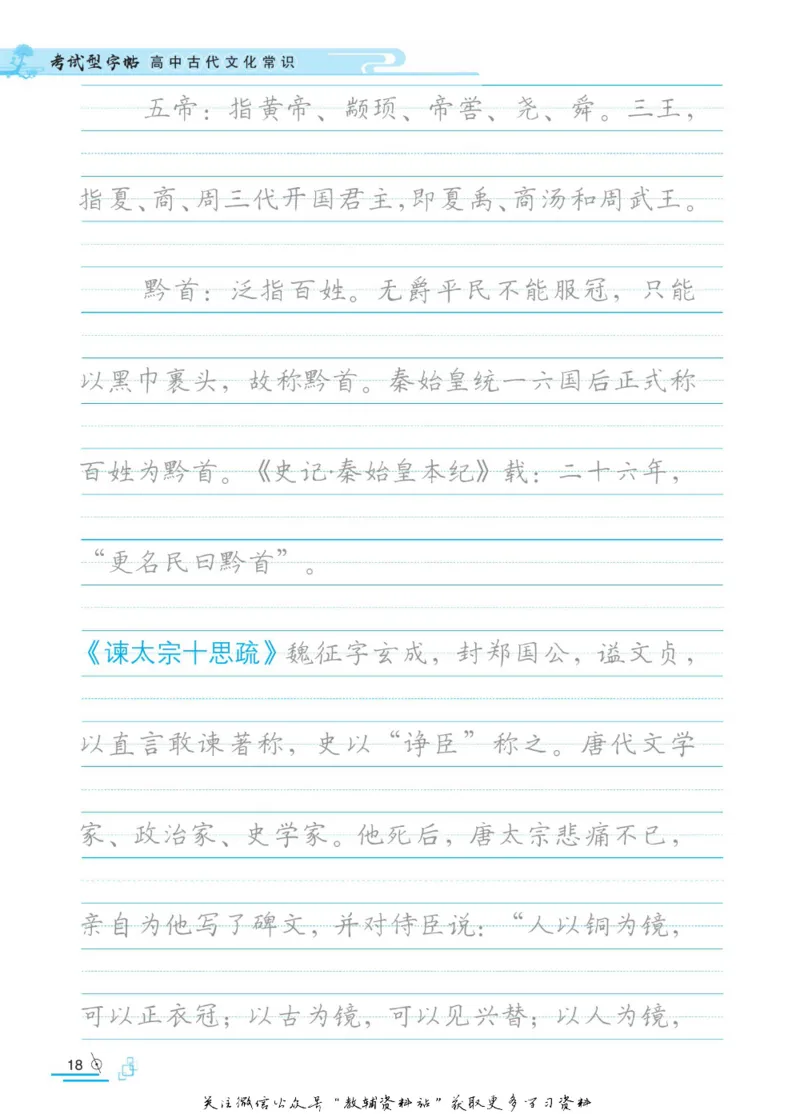 考试型字帖 高中古代文化常识
五帝：指黄帝、颛顼、帝喾、尧、舜。三王，
指夏、商、周三代开国君主，即夏禹、商汤和周武王。
黔首：泛指百姓。无爵平民不能服冠，只能
以黑巾裹头，故称黔首。秦始皇统一六国后正式称
百姓为黔首。《史记·秦始皇本纪》载：二十六年，
“更名民曰黔首”。
《谏太宗十思疏》魏征字玄成，封郑国公，谥文贞，
以直言敢谏著称，史以“诤臣”称之。唐代文学
家、政治家、史学家。他死后，唐太宗悲痛不已，
亲自为他写了碑文，并对侍臣说：“人以铜为镜，
可以正衣冠；以古为镜，可以见兴替；以人为镜，
18
关注微信公众号“教辅资料站”获取更多学习资料